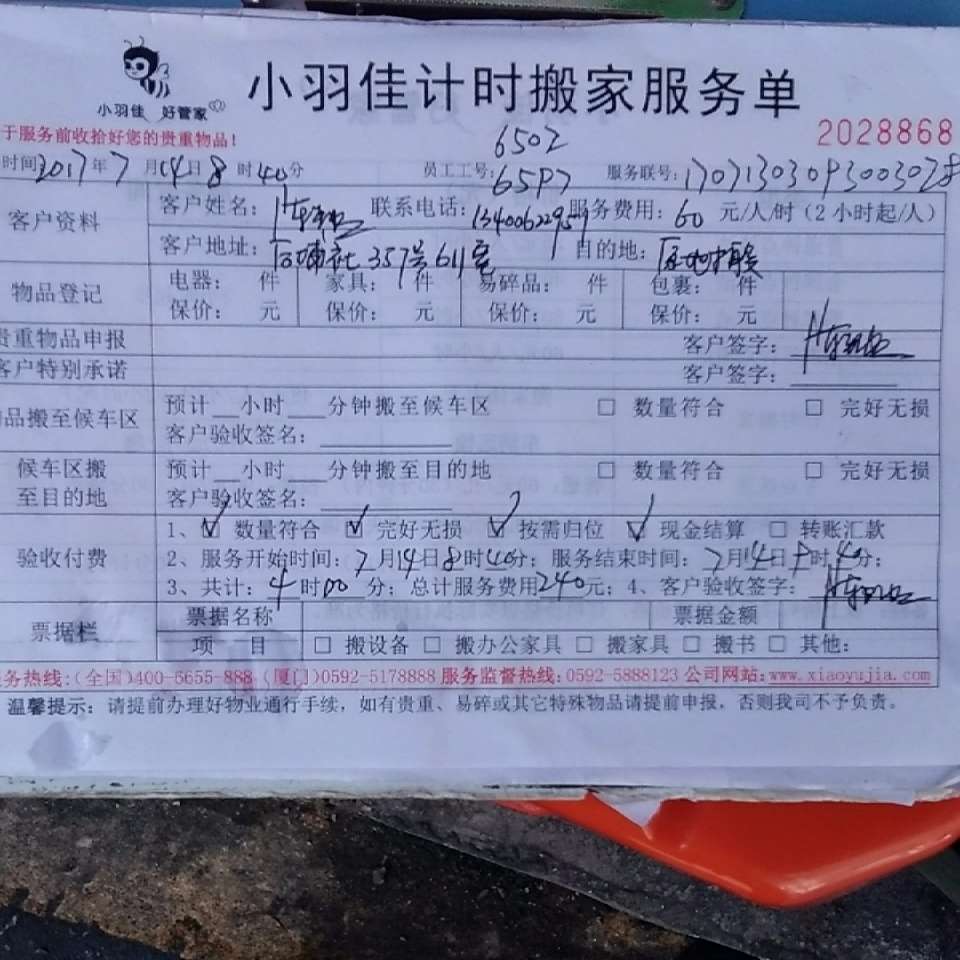 小羽佳 好管家
小羽佳计时搬家服务单
于服务前收拾好您的贵重物品!
2028868
时间2017年7月14日8时40分 员工工号: 6502 服务联号:
客户资料
客户姓名: 联系电话:13400622959 服务费用:60元/人/时(2小时起/人)
客户地址: 357号611室 目的地:
物品登记
电器: 件 家具: 件 易碎品: 件 包裹: 件
保价: 元 保价: 元 保价: 元 保价: 元
贵重物品申报 客户签字:
客户特别承诺 客户签字:
品搬至候车区
预计__小时___分钟搬至候车区 □ 数量符合 □ 完好无损
客户验收签名:
候车区搬
至目的地
预计__小时___分钟搬至目的地 □ 数量符合 □ 完好无损
客户验收签名:
验收付费
1、☑ 数量符合 ☑ 完好无损 ☑ 按需归位 ☑ 现金结算 □ 转账汇款
2、服务开始时间:7月14日8时40分;服务结束时间:7月14日 时40分;
3、共计:4时00分;总计服务费用240元;4、客户验收签字:
票据栏
票据名称 票据金额
项 目 □ 搬设备 □ 搬办公家具 □ 搬家具 □ 搬书 □ 其他:
务热线:(全国)400-6655-888 (厦门)0592-5178888 服务监督热线:0592-5888123 公司网站:www.xiaoyujia.com
温馨提示:请提前办理好物业通行手续,如有贵重、易碎或其它特殊物品请提前申报,否则我司不予负责。